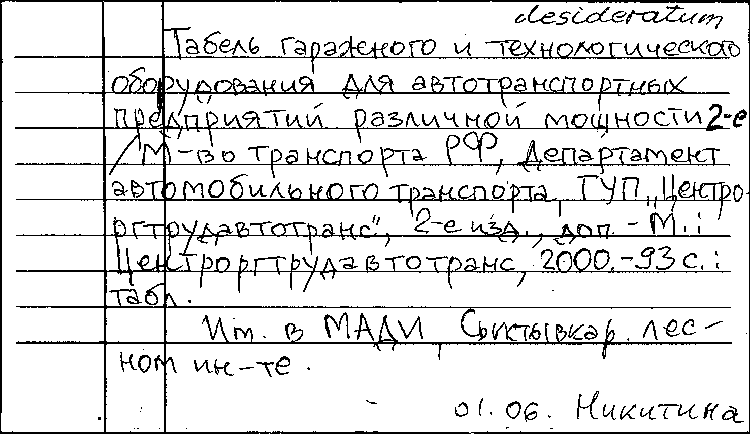 desideratum
Табель гаражного и технологического
оборудования для автотранспортных
предприятий различной мощности 2-е
/М-во транспорта РФ, Департамент
автомобильного транспорта, ГУП „Центро-
ргтрудавтотранс", 2-е изд., доп. - М.:
Центроргтрудавтотранс, 2000.-93 с.:
табл.
Им. в МАДИ, Сыктывкар. лес-
ном ин-те.
01.06. Никитина